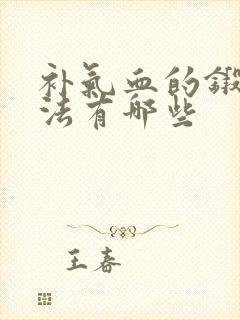 补氣血的鍛
法有哪些
王春